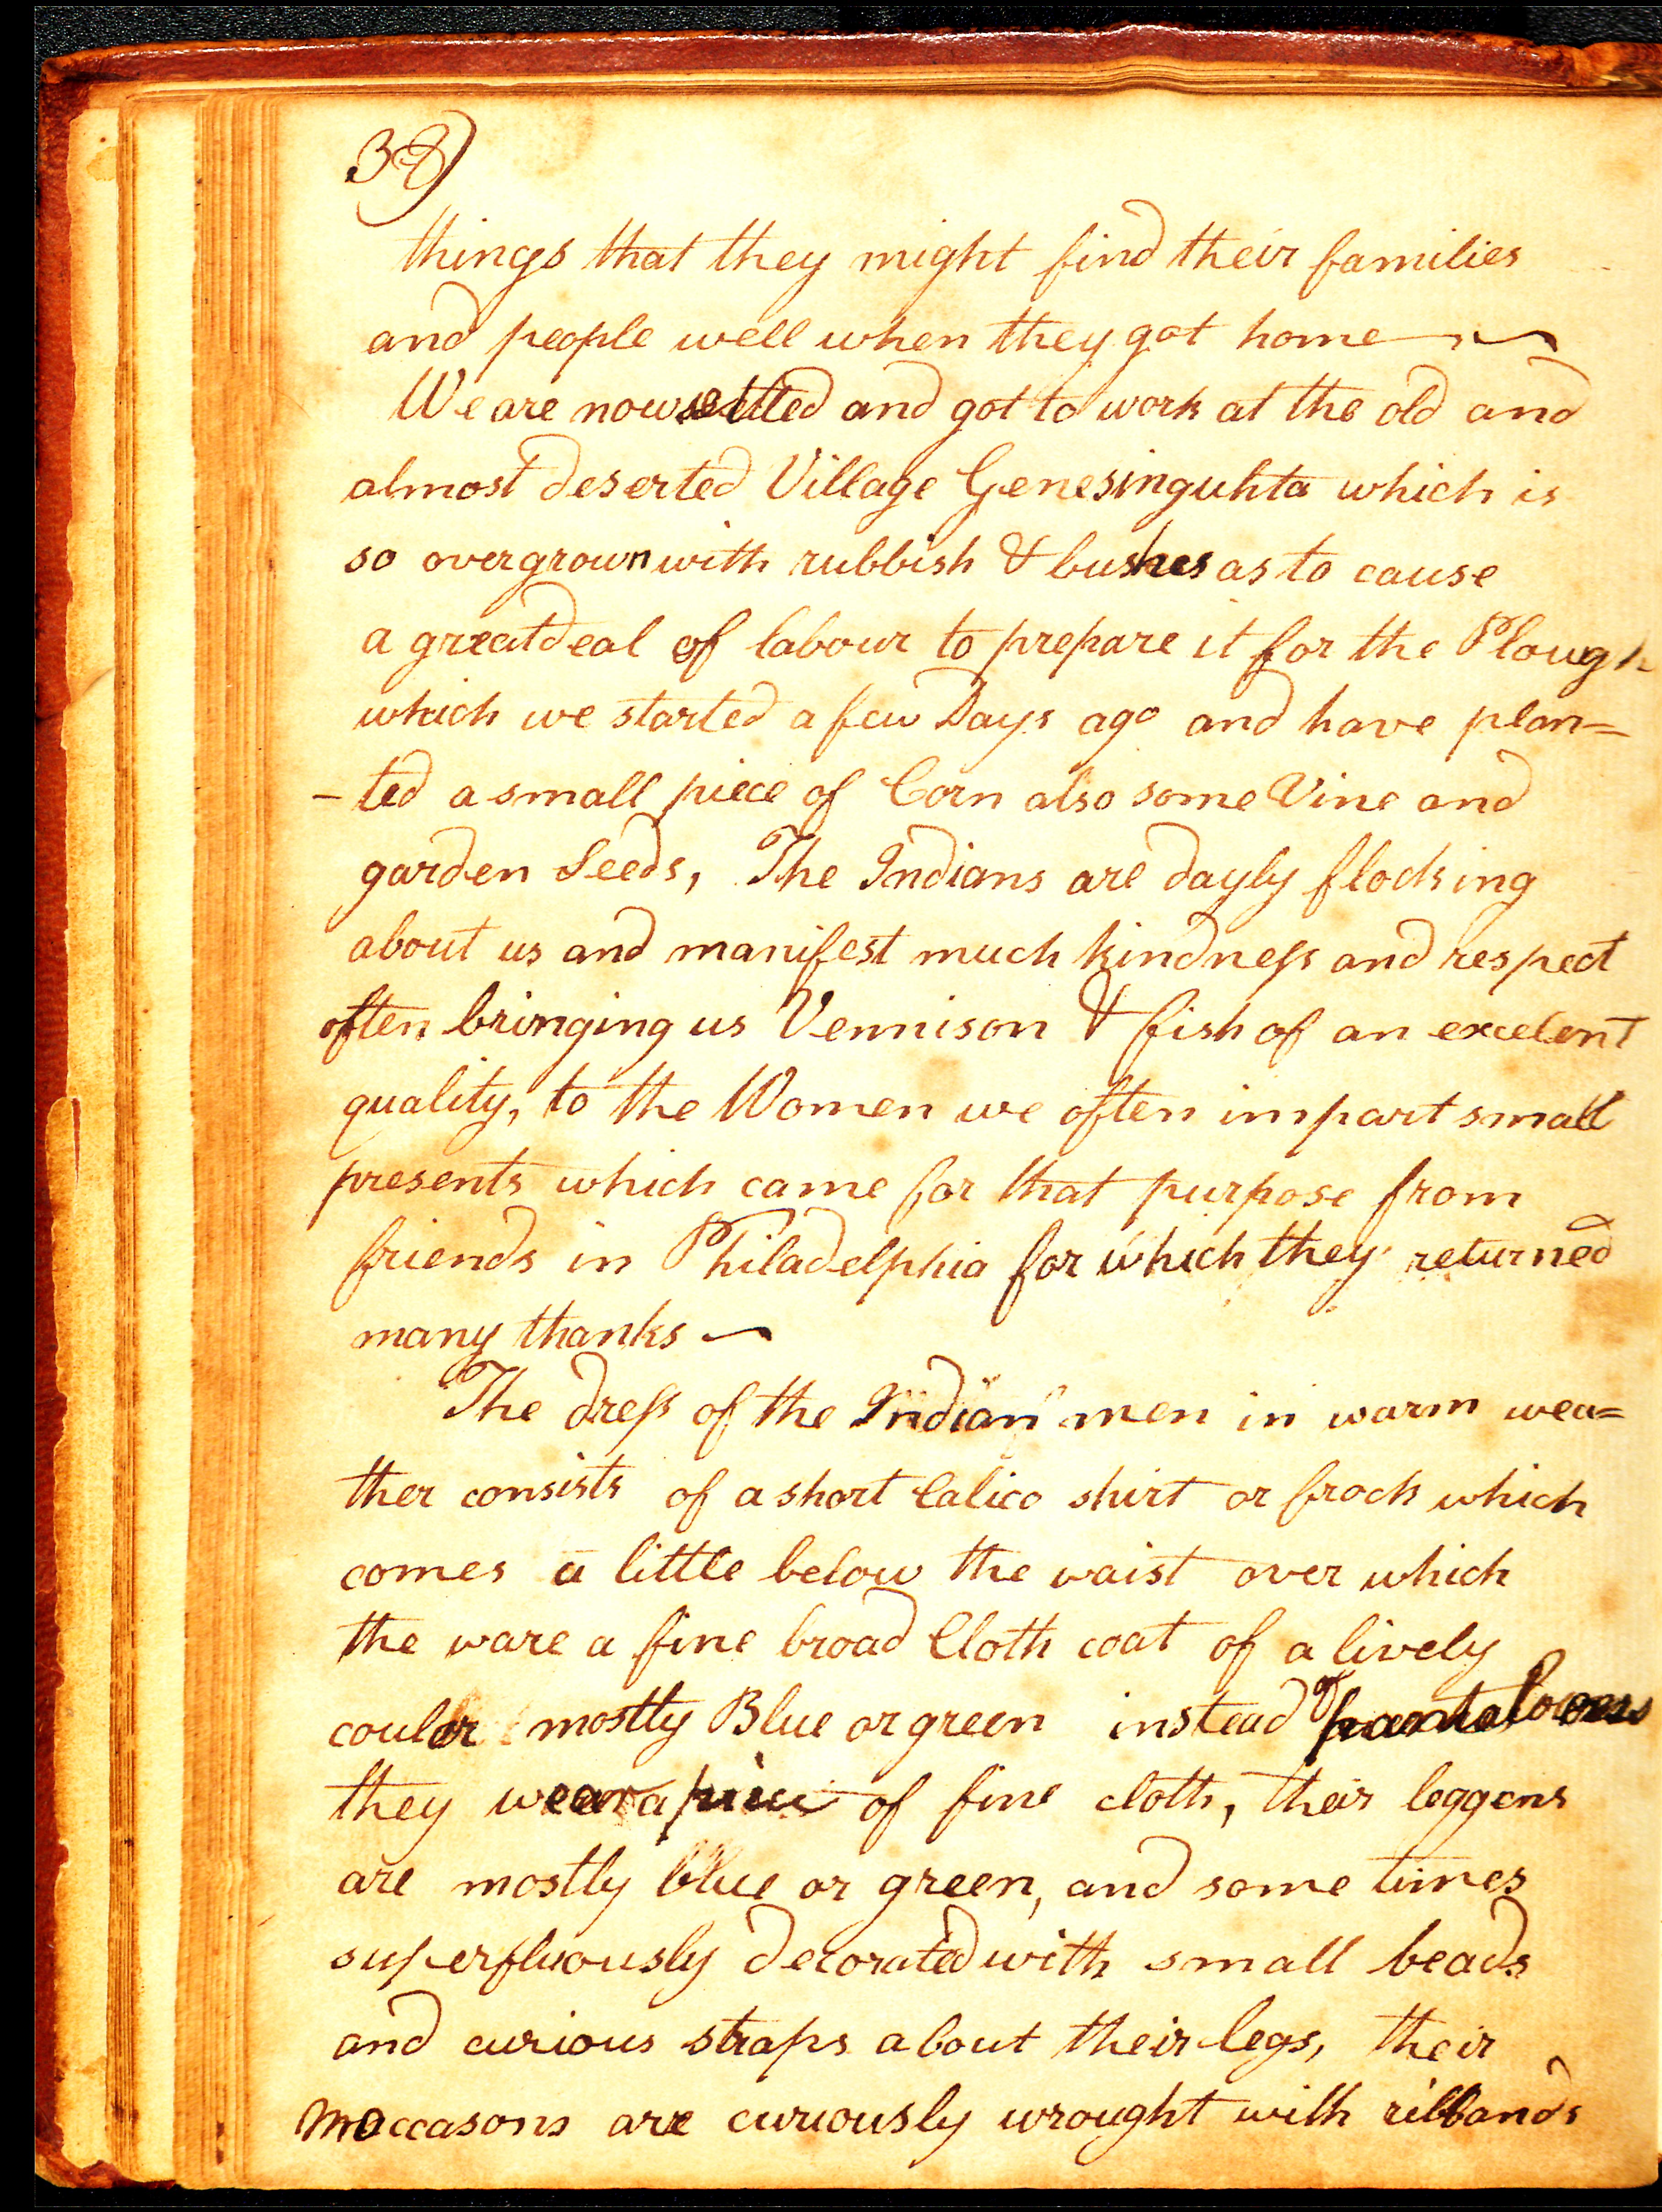 38)
things that they might find their families
and people well when they got home
We are now settled and got to work at the old and
almost deserted Village Genesinguhta which is
so overgrown with rubbish & bushes as to cause
a great deal of labour to prepare it for the Plough
which we started a few Days ago and have plan=
-ted a small piece of Corn also some Vine and
garden Seeds, The Indians are dayly flocking
about us and manifest much kindness and respect
often bringing us Vennison & fish of an excelent
quality, to the Women we often impart small
presents which came for that purpose from
friends in Philadelphia for which they returned
many thanks —
The dress of the Indian men in warm wea=
ther consists of a short Calico shirt or frock which
comes a little below the waist over which
the ware a fine broad Cloth coat of a lively
couler mostly Blue or green instead of pantalowns
they wear a piece of fine cloth, their leggens
are mostly blue or green, and some times
superfluously decorated with small beads
and curious straps about their legs, their
moccasons are curiously wrought with ribbands